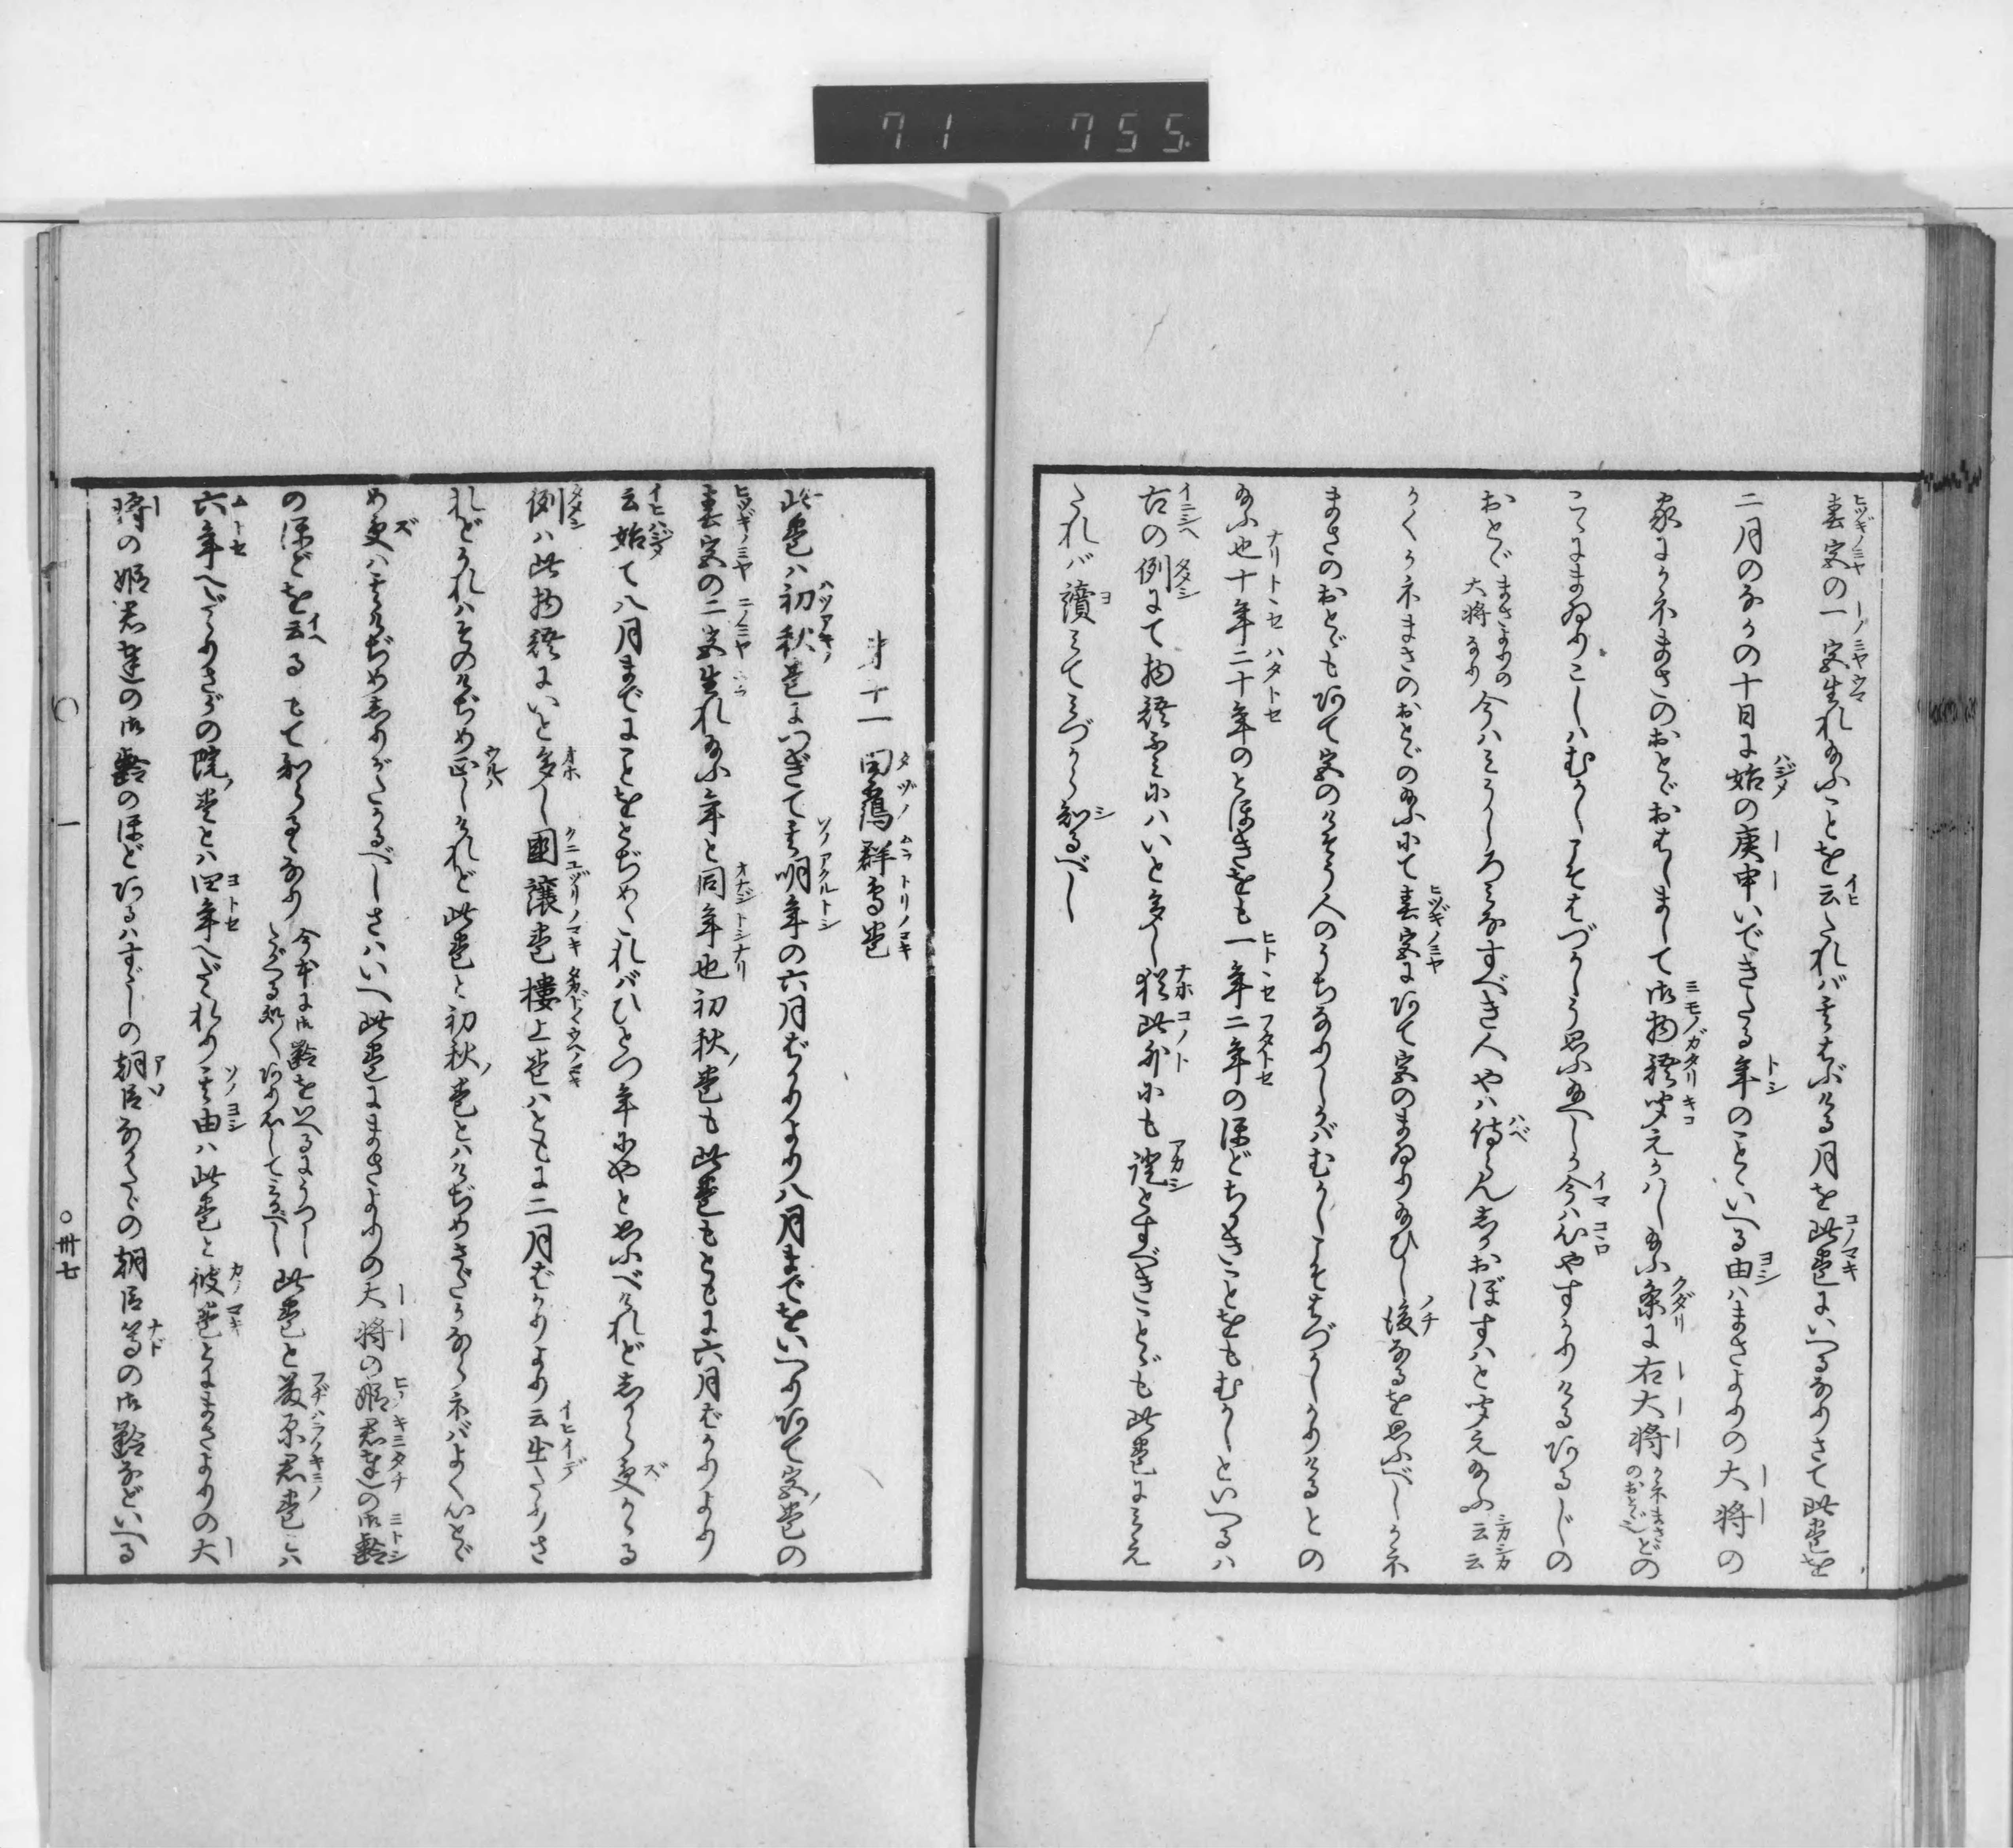 71 755
春宮の一宮生れ給ふことを云たれバ其たぶける月を此巻にいへるなりさて此巻を
二月のなかの十日に始の庚申いできたる年のこといへる由ハまさよりの大将の
家にかネまさのおとゞおはしまして御物語聞えかハし給ふ条に右大将かネまさのおとゞどの
こゝにまゐりこしハむかしこそはづかしう思ふ給へしか今ハ心やすかりけるあるじの
おとゞまさよりの大将なり今ハミうしろミなすべき人やハ侍らんしかおぼすハと聞え給ふ云云
かくかネまさのおとゞの給ふにて春宮にあて宮のまゐり給ひし後なるを思ふべしかネ
まさのおとゞもあて宮のけさう人のうちなりしかバむかしこそはづかしかりけるとの
給ふ也十年二十年のとほきをも一年二年のほどちかきことをもむかしといへるハ
古の例にて物語ぶミにハいと多し猶此外にも證とすべきことゞも此巻にミえ
たれバ讀ミてミづから知るべし
十一 田鶴群鳥巻
此巻ハ初秋巻につぎて其明年の六月ばかりより八月までをいへりあて宮巻の
春宮の二宮生れ給ふ年と同年也初秋巻も此巻もともに六月ばかりより
云始て八月までにことをとぢめたれバひとつ年にやと思ふべけれどしからず更かゝる
例ハ此物語にいと多し國讓巻樓上巻ハともに二月ばかりより云出たりさ
れどかれハそのけぢめ正しけれど此巻と初秋巻とハけぢめさだかならネバよくいとゞ
め更ハ其けぢめしりがたかるべしさハいへ此巻にまさよりの大将の姫君達の御齢
のほどを云るもて知らるゝなり今本に御齢をいへるにうつしたがへる類ありわして正すべし此巻と藤原君巻とハ
六年へだゝりさがの院巻とハ四年へだゝれり其由ハ此巻と彼巻とにまさよりの大
将の姫君達の御齢のほどあるハすゞしの朝臣なかたゞの朝臣等の御齢などいへる
一
卅七